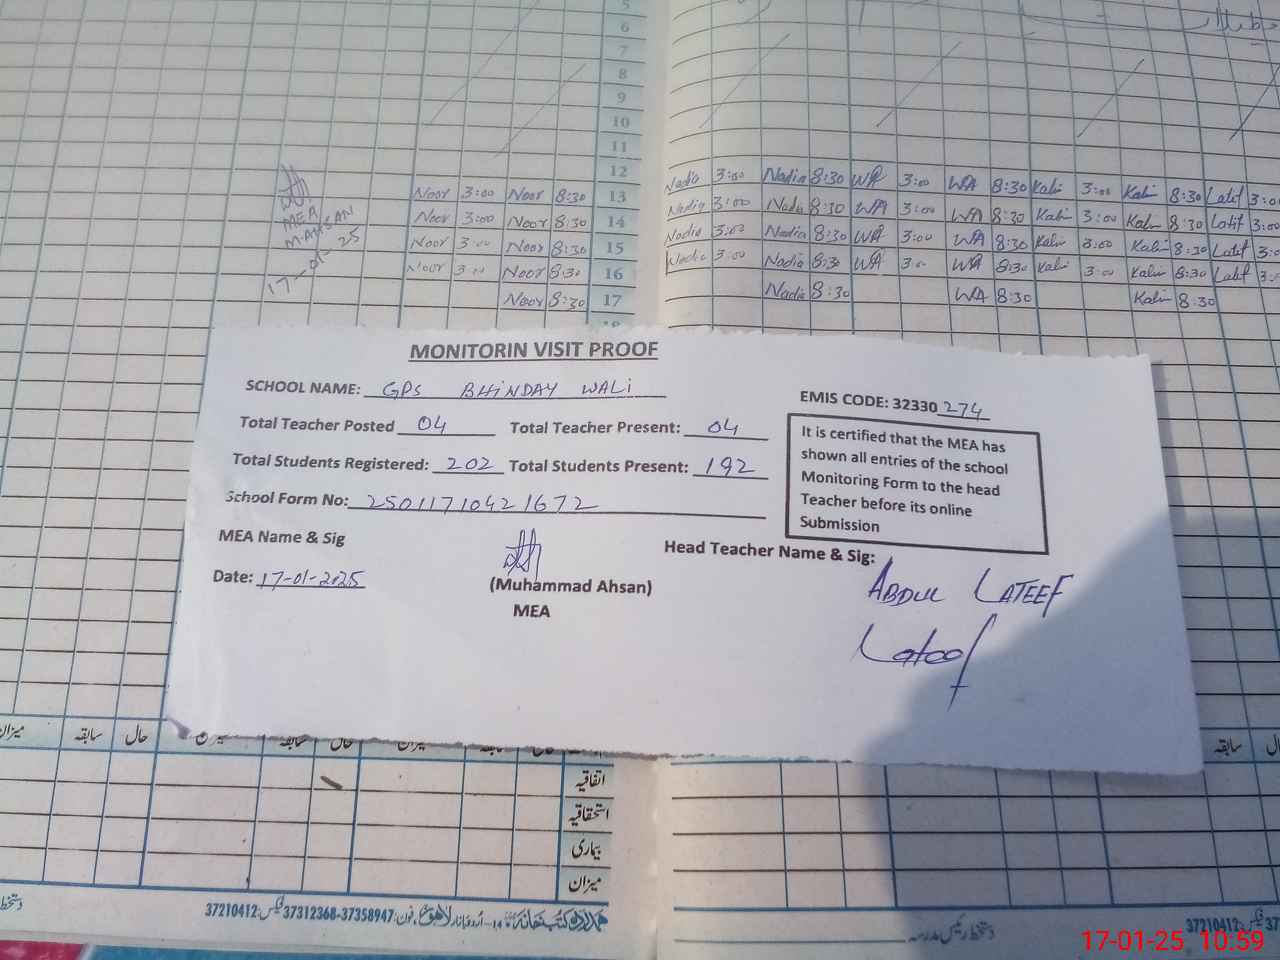 5
6
7
8
9
10
11
12
Noor 3:00 Noor 8:30 13 Nadia 3:00 Nadia 8:30 WA 3:00 WA 8:30 Kali 3:00 Kali 8:30 Latif 3:00
Noor 3:00 Noor 8:30 14 Nadia 3:00 Nadia 8:30 WA 3:00 WA 8:30 Kali 3:00 Kali 8:30 Latif 3:00
Noor 3:00 Noor 8:30 15 Nadia 3:00 Nadia 8:30 WA 3:00 WA 8:30 Kali 3:00 Kali 8:30 Latif 3:00
Noor 3:00 Noor 8:30 16 Nadia 3:00 Nadia 8:30 WA 3:00 WA 8:30 Kali 3:00 Kali 8:30 Latif 3:00
Noor 8:30 17 Nadia 8:30 WA 8:30 Kali 8:30
MEA
M.AHSAN
17-01-25
MONITORIN VISIT PROOF
SCHOOL NAME: GPS BHINDAY WALI
EMIS CODE: 32330 274
Total Teacher Posted 04 Total Teacher Present: 04
Total Students Registered: 202 Total Students Present: 192
School Form No: 25011710421672
It is certified that the MEA has
shown all entries of the school
Monitoring Form to the head
Teacher before its online
Submission
MEA Name & Sig
Date: 17-01-2025
(Muhammad Ahsan)
MEA
Head Teacher Name & Sig:
ABDUL LATEEF
Lateef
میزان سابقہ حال سابقہ
اتفاقیہ
استحقاقیہ
بیماری
میزان
فون: 37358947-37312368 فیکس: 37210412
دستخط رئیس مدرسہ
37210412
17-01-25, 10:59